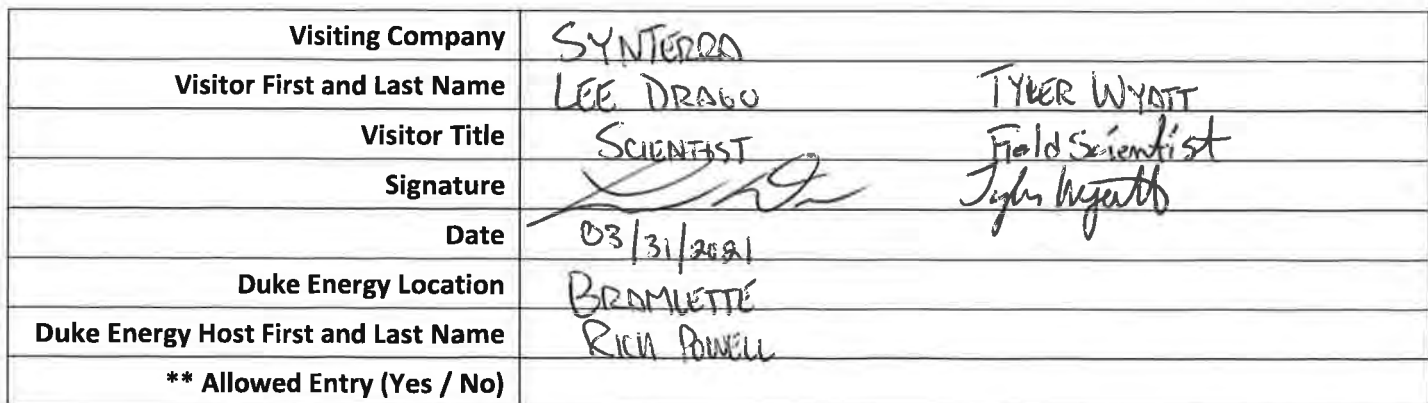 Visiting Company SYNTERRA
Visitor First and Last Name LEE DRAGO TYLER WYATT
Visitor Title SCIENTIST Field Scientist
Signature Tyler Wyatt
Date 03/31/2021
Duke Energy Location BRAMLETTE
Duke Energy Host First and Last Name RICH POWELL
** Allowed Entry (Yes / No)